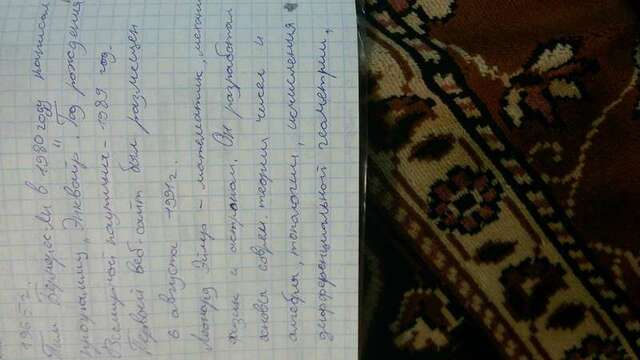 1965г.
Тим Бернерс-ли в 1980 году написал
программу „Энквайр". Год рождения
Всемирной паутины - 1989 год.
Первый веб-сайт был размещен
6 августа 1991г.
Леонард Эйлер - математик, механ
физик и астроном. Он разработал
основы соврем. теории чисел и
алгебры, топологии, исчисления
дифференциальной геометрии,